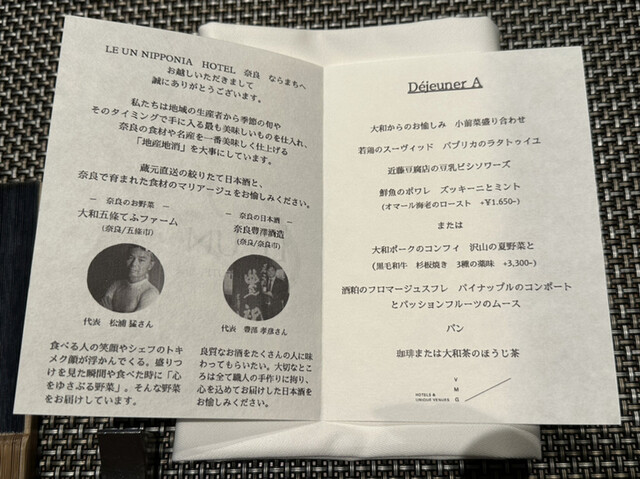 LE UN NIPPONIA HOTEL 奈良 ならまちへ
お越しいただきまして
誠にありがとうございます。
私たちは地域の生産者から季節の旬や
そのタイミングで手に入る最も美味しいものを仕入れ、
奈良の食材や名産を一番美味しく仕上げる
「地産地消」を大事にしています。
蔵元直送の搾りたて日本酒と、
奈良で育まれた食材のマリアージュをお愉しみください。
― 奈良のお野菜 ―
大和五條てふファーム
(奈良/五條市)
代表 松浦 猛さん
食べる人の笑顔やシェフのトキ
メク顔が浮かんでくる。盛りつ
けを見た瞬間や食べた時に「心
をゆさぶる野菜」。そんな野菜
をお届けしています。
― 奈良の日本酒 ―
奈良豊澤酒造
(奈良/奈良市)
代表 豊澤 孝彦さん
良質なお酒をたくさんの人に味
わってもらいたい。大切なとこ
ろは全て職人の手作りに拘り、
心を込めてお届けした日本酒を
お愉しみください。
Déjeuner A
大和からのお愉しみ 小前菜盛り合わせ
若鶏のスーヴィッド パプリカのラタトゥイユ
近藤豆腐店の豆乳ビシソワーズ
鮮魚のポワレ ズッキーニとミント
(オマール海老のロースト +¥1.650-)
または
大和ポークのコンフィ 沢山の夏野菜と
(黒毛和牛 杉板焼き 3種の薬味 +3,300-)
酒粕のフロマージュスフレ パイナップルのコンポート
とパッションフルーツのムース
パン
珈琲または大和茶のほうじ茶
V
M
G
HOTELS &
UNIQUE VENUES